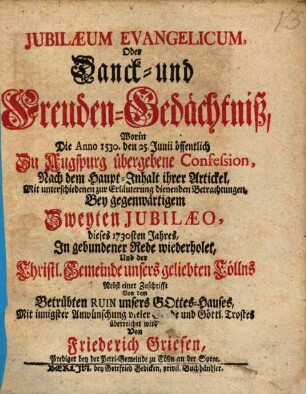 JUBILÆUM EVANGELICUM,
Oder
Danck- und
Freuden-Gedächtniß,
Worin
Die Anno 1530. den 25. Junii öffentlich
Zu Augspurg übergebene Confession,
Nach dem Haupt-Inhalt ihrer Artickel,
Mit unterschiedenen zur Erläuterung dienenden Betrachtungen,
Bey gegenwärtigem
Zweyten JUBILÆO,
dieses 1730sten Jahres,
In gebundener Rede wiederholet,
Und der
Christl. Gemeinde unsers geliebten Cöllns
Nebst einer Zuschrifft
Von dem
Betrübten RUIN unsers GOttes-Hauses,
Mit innigster Anwünschung vieler und Göttl. Trostes
überreichet wird
Von
Friederich Griesen,
Prediger bey der Petri-Gemeinde zu Cölln an der Spree.
BERLIN, bey Gottfried Gedicken, privil. Buchhändler.